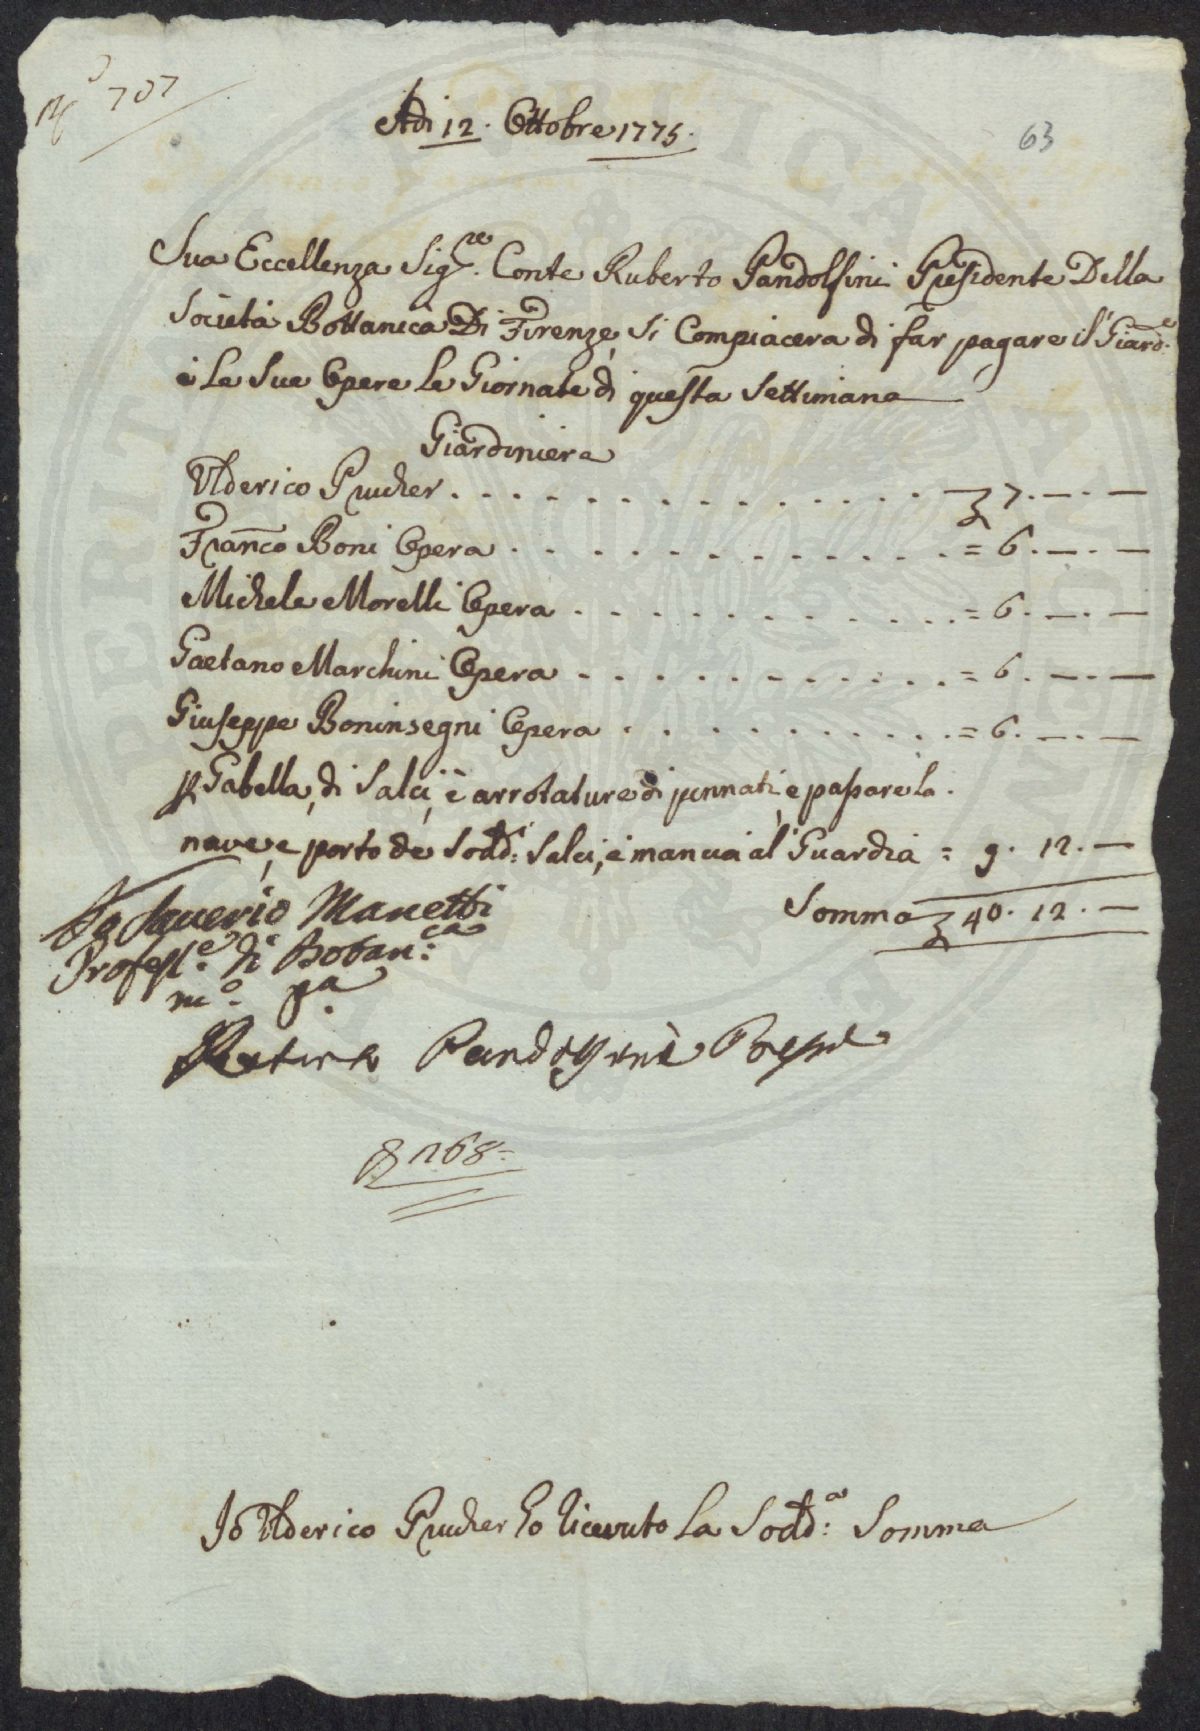 No 707
Adi 12. Ottobre 1775.
63
Sua Eccellenza Sig.re Conte Ruberto Pandolfini Presidente Della
Società Bottanica Di Firenze, si Compiacera di far pagare il Giard.e
e Le Sue Opere Le Giornate di questa Settimana
Giardiniera
Ulderico Prucher . . . . . . . . . . 7. — . —
Franco Boni Opera . . . . . . . . . . = 6. — . —
Michele Morelli Opera . . . . . . . . . = 6. — . —
Gaetano Marchini Opera . . . . . . . . . = 6. — . —
Giuseppe Boninsegni Opera . . . . . . . . = 6. — . —
p Gabella, di Salci, è arrotature di pennati, e passare la
nave, e porto de Sodd:i Salci, e mancia al Guardia = 9. 12. —
Somma 40. 12. —
Io Saverio Manetti
Profess.e di Botan:ca
m.o p.a
Ruberto Pandolfini
268
Io Ulderico Prucher ho ricevuto La Sodd:a Somma